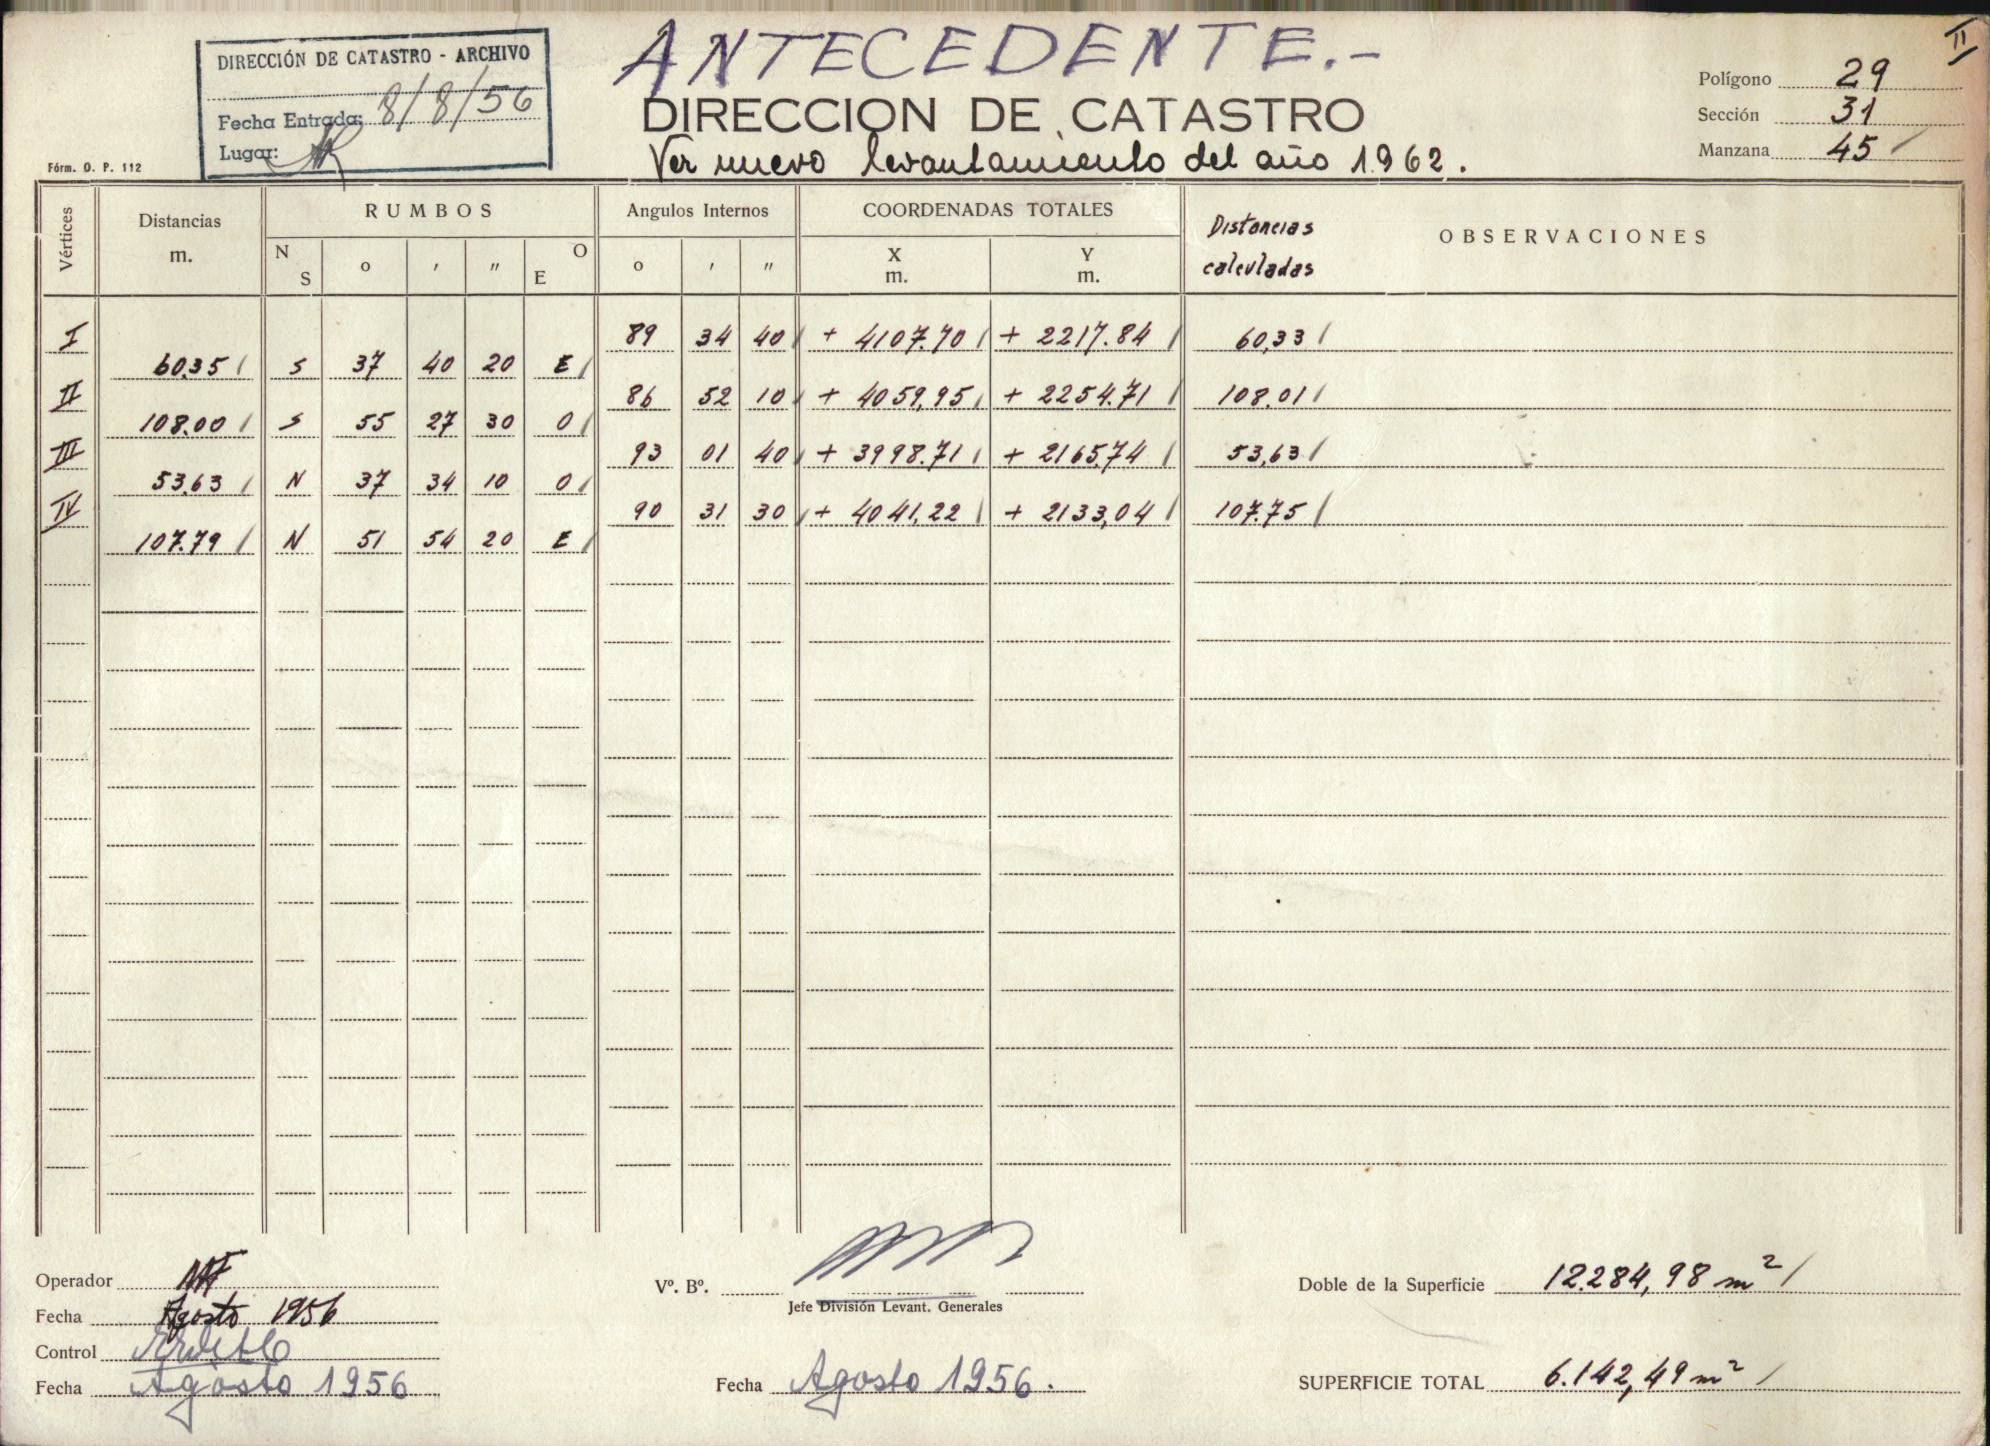 ANTECEDENTE.-
II
DIRECCIÓN DE CATASTRO - ARCHIVO
Fecha Entrada: 8/8/56
Lugar:
DIRECCION DE CATASTRO
Ver nuevo levantamiento del año 1962.
Polígono 29
Sección 31
Manzana 45 /
Fórm. O. P. 112
Vértices Distancias m. RUMBOS Angulos Internos COORDENADAS TOTALES Distancias calculadas OBSERVACIONES
N S ° ' " O E ° ' " X m. Y m.
I 89 34 40 / + 4107.70 / + 2217.84 / 60,33 /
60.35 / S 37 40 20 E /
II 86 52 10 / + 4059,95 / + 2254.71 / 108.01 /
108.00 / S 55 27 30 O /
III 93 01 40 / + 3998.71 / + 2165,74 / 53,63 /
53.63 / N 37 34 10 O /
IV 90 31 30 / + 4041,22 / + 2133,04 / 107.75 /
107.79 / N 51 54 20 E /
Operador
Fecha Agosto 1956
Control
Fecha Agosto 1956
Vº. Bº.
Jefe División Levant. Generales
Fecha Agosto 1956.
Doble de la Superficie 12.284,98 m² /
SUPERFICIE TOTAL 6.142,49 m² /